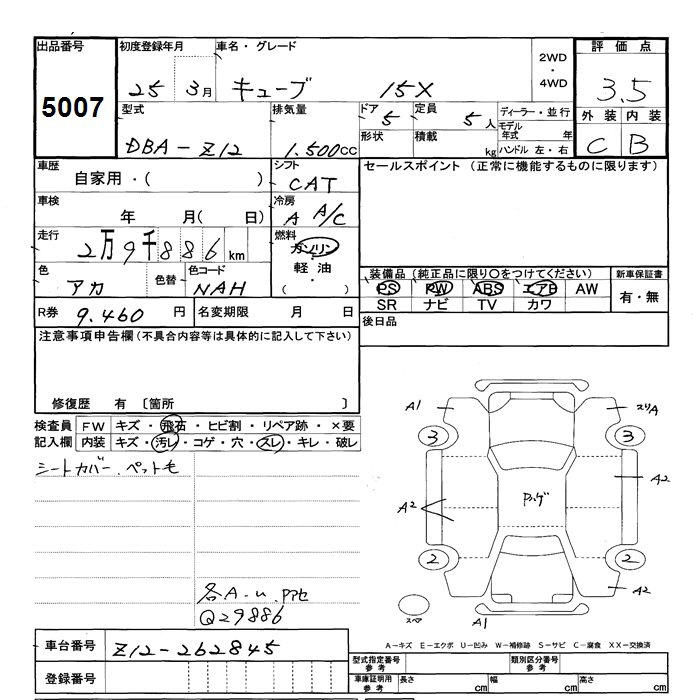 出品番号 初度登録年月 車名・グレード 2WD・4WD 評価点
5007 25 3月 キューブ 15X 3.5
型式 排気量 ドア 5 定員 5人 ディーラー・並行 外装 内装
DBA-Z12 1.500cc 形状 積載 kg モデル年式 年 ハンドル 左・右 C B
車歴 自家用・( ) シフト CAT セールスポイント (正常に機能するものに限ります)
車検 年 月( 日) 冷房 A A/C
走行 2万9千886km 燃料 ガソリン・軽油・( )
色 アカ 色替 色コード NAH 装備品 (純正品に限り○をつけてください) 新車保証書
PS PW ABS エアB AW 有・無
SR ナビ TV カワ
R券 9.460円 名変期限 月 日 後日品
注意事項申告欄(不具合内容等は具体的に記入して下さい)
修復歴 有 〔箇所 〕
検査員 FW キズ・飛石・ヒビ割・リペア跡・×要
記入欄 内装 キズ・汚レ・コゲ・穴・スレ・キレ・破レ
シートカバー、ペット毛
A1 スリA
3 3
A2 Pカゲ A2
2 2
A2
スペア A1
各A-u、
Q29886
A-キズ E-エクボ U-凹み W-補修跡 S-サビ C-腐食 XX-交換済
車台番号 Z12-262845
登録番号
型式指定番号 参考 類別区分番号 参考
車庫証明用 参考 長さ cm 幅 cm 高さ cm